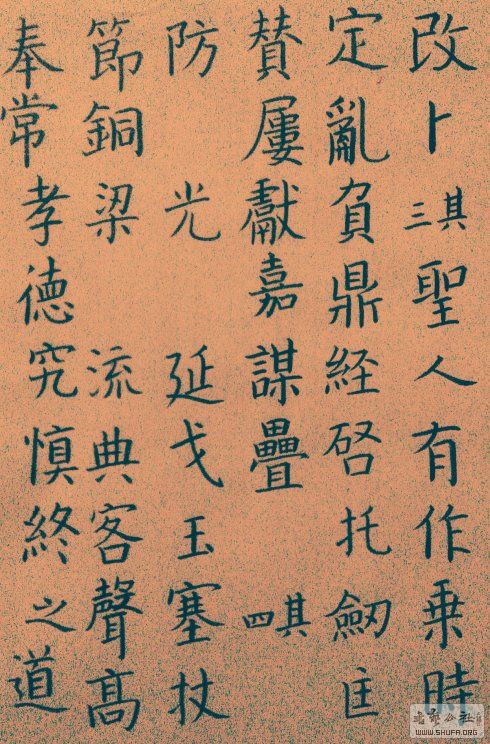 改卜其三聖人有作乗時
定亂負鼎経啓托劒匡
賛屢獻嘉謀疊其四
防光延戈玉塞杖
節銅梁流典客聲髙
奉常孝德究慎終之道
WWW.SHUFA.ORG